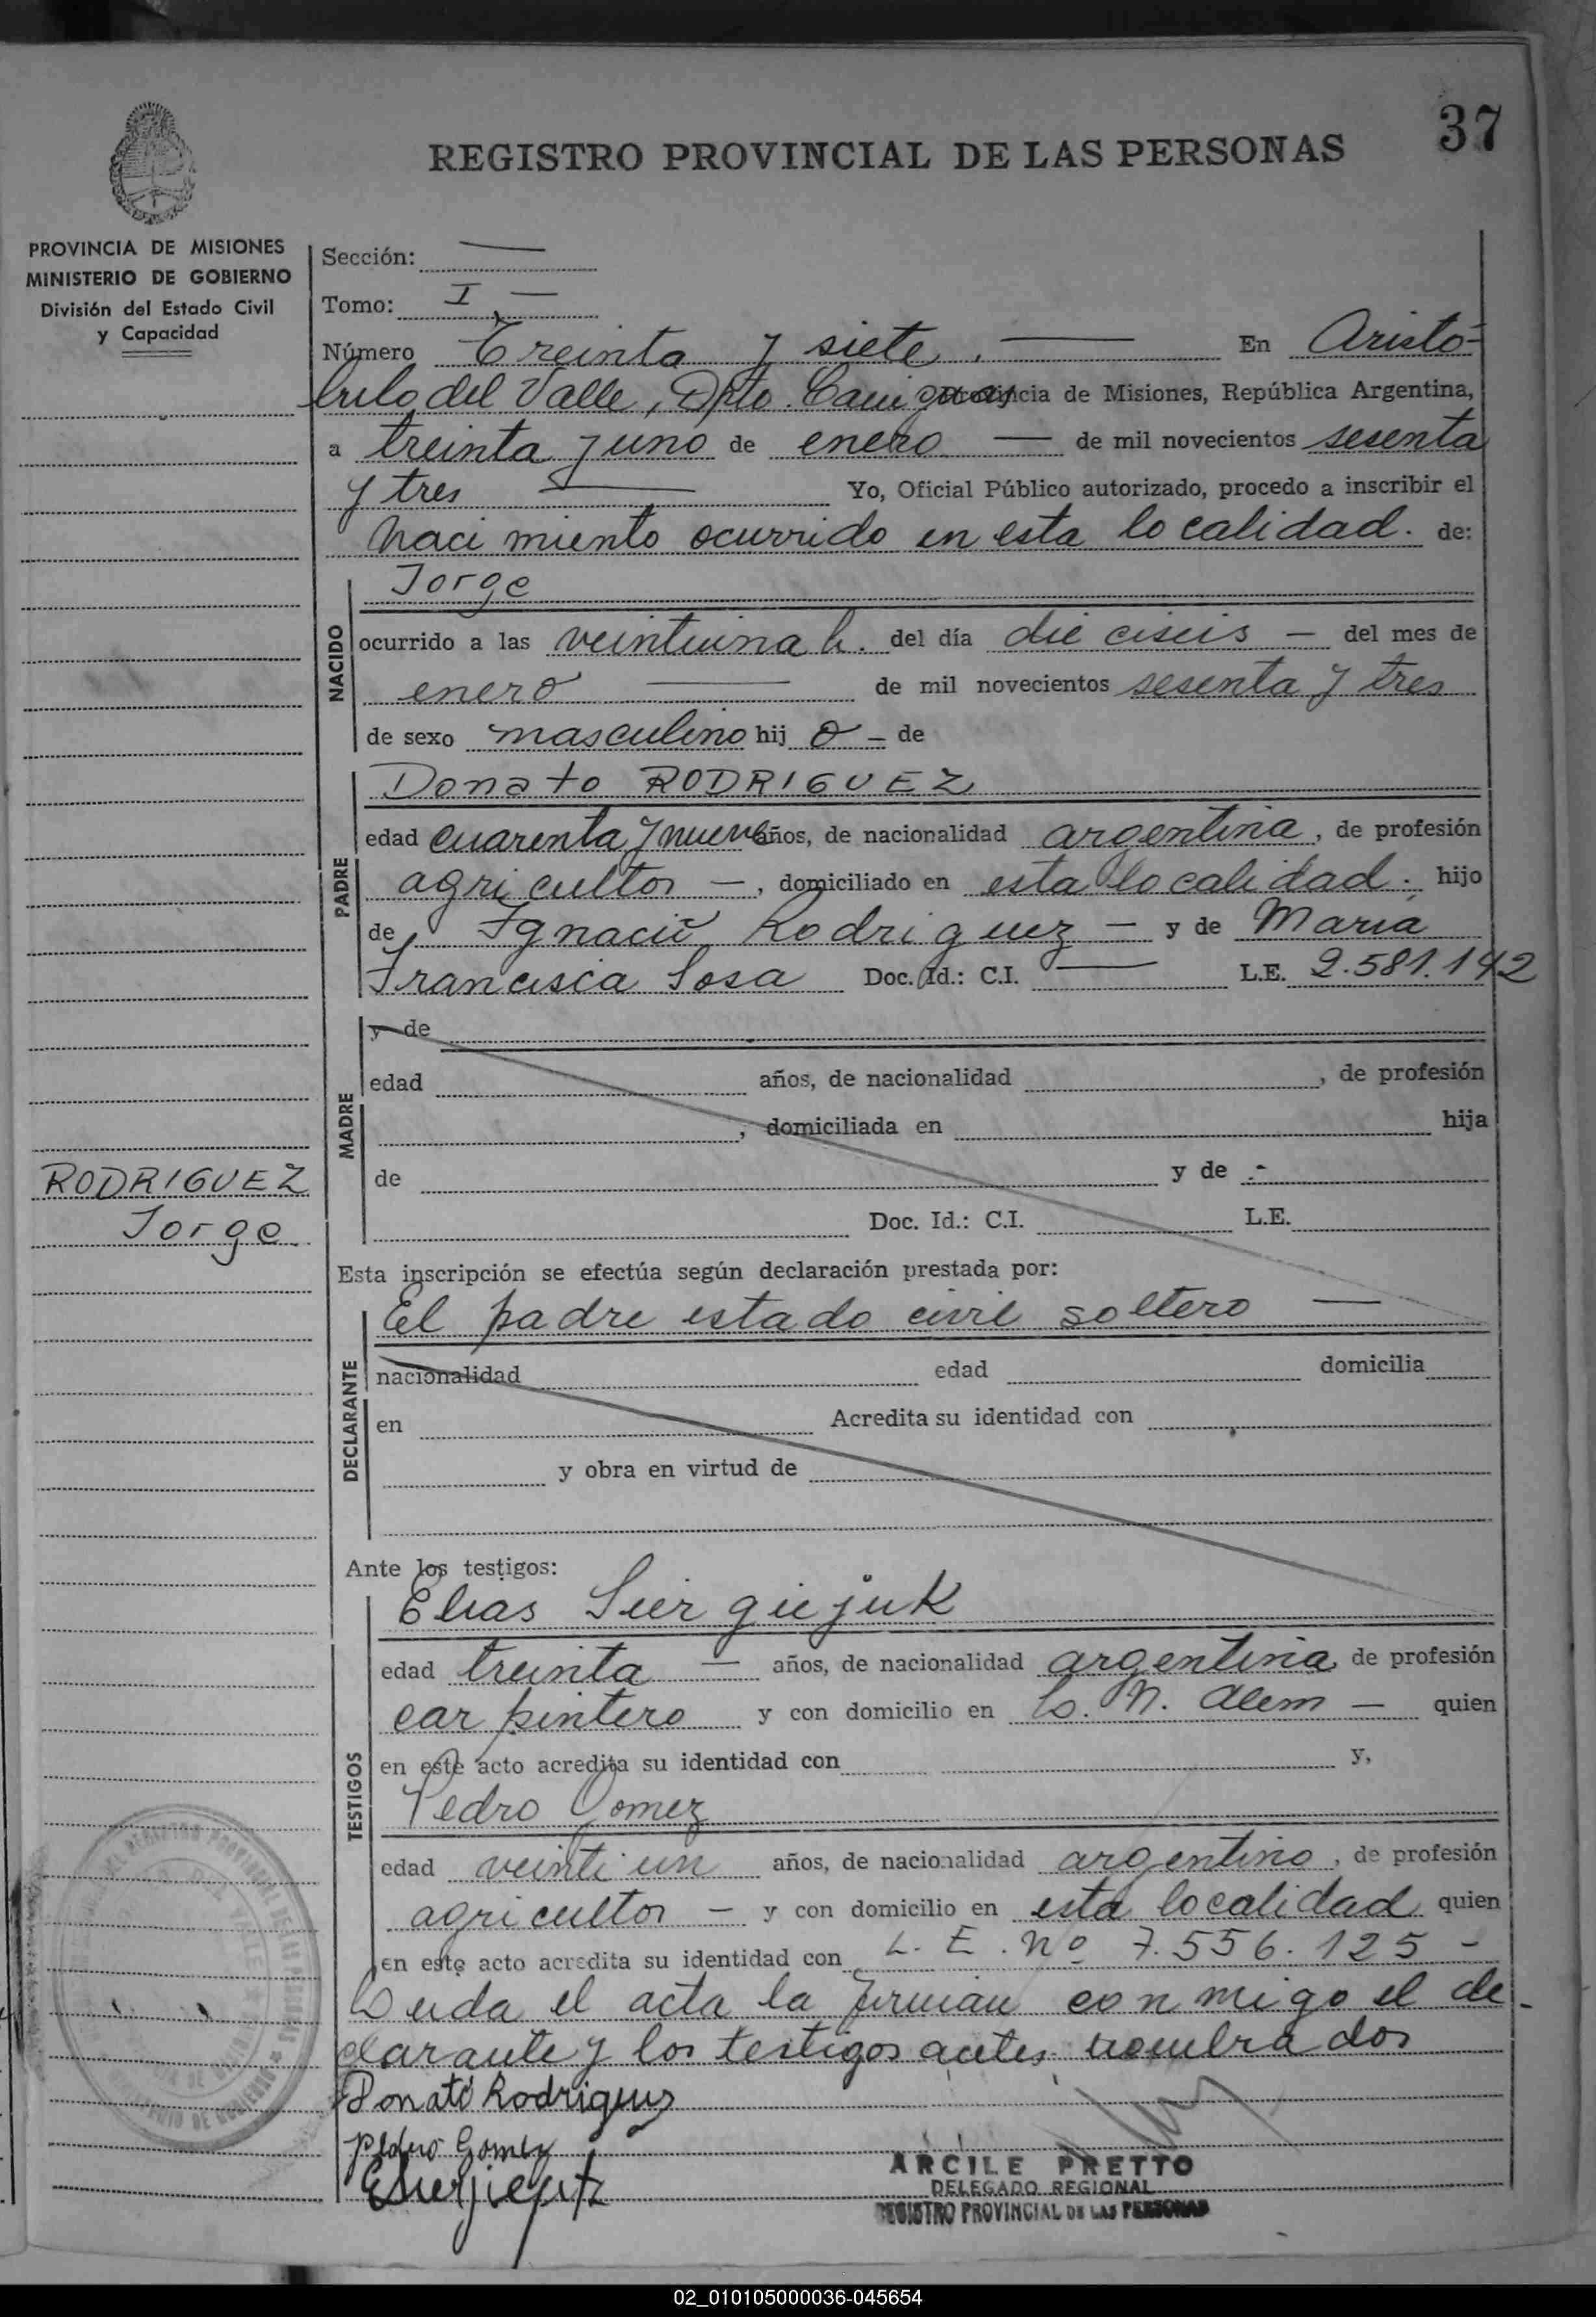 37
REGISTRO PROVINCIAL DE LAS PERSONAS
PROVINCIA DE MISIONES
MINISTERIO DE GOBIERNO
División del Estado Civil
y Capacidad
Sección: —
Tomo: I, —
Número Treinta y siete, — En Aristó-
bulo del Valle, Dpto. Cainguas Provincia de Misiones, República Argentina,
a treinta y uno de enero — de mil novecientos sesenta
y tres — Yo, Oficial Público autorizado, procedo a inscribir el
Nacimiento ocurrido en esta localidad. de:
NACIDO
Jorge
ocurrido a las veintiuna h. del día dieciseis — del mes de
enero — de mil novecientos sesenta y tres
de sexo masculino hij o — de
PADRE
Donato RODRIGUEZ
edad cuarenta y nueve años, de nacionalidad argentina, de profesión
agricultor —, domiciliado en esta localidad. hijo
de Ignacio Rodriguez — y de María
Francisca Sosa Doc. Id.: C.I. — L.E. 2.581.142
MADRE
y de
edad años, de nacionalidad , de profesión
, domiciliada en hija
de y de .-
Doc. Id.: C.I. L.E.
RODRIGUEZ
Jorge
Esta inscripción se efectúa según declaración prestada por:
DECLARANTE
El padre estado civil soltero —
nacionalidad edad domicilia
en Acredita su identidad con
y obra en virtud de
Ante los testigos:
TESTIGOS
Elias Siergiejuk
edad treinta — años, de nacionalidad argentina de profesión
carpintero y con domicilio en L. N. Alem — quien
en este acto acredita su identidad con y,
Pedro Gomez
edad veintiun años, de nacionalidad argentino, de profesión
agricultor — y con domicilio en esta localidad quien
en este acto acredita su identidad con L. E. Nº 7.556.125 -
Leida el acta la firman conmigo el de-
clarante y los testigos antes nombrados
Donato Rodriguez
Pedro Gomez
ARCILE PRETTO
DELEGADO REGIONAL
REGISTRO PROVINCIAL DE LAS PERSONAS
02_010105000036-045654